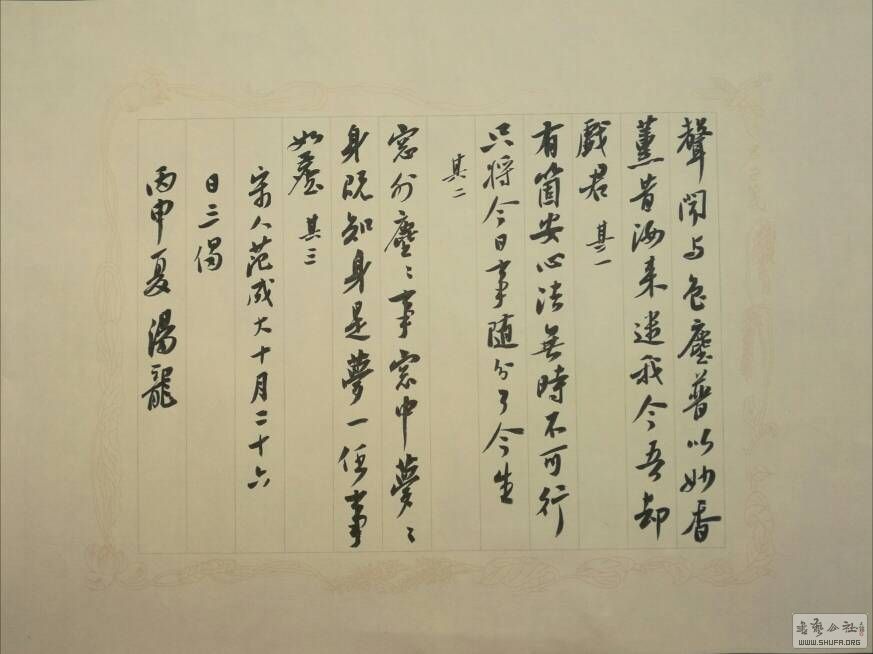 聲聞与色塵普以妙香
薰昔汝来迷我今吾却
戲君 其一
有箇安心法無時不可行
只将今日事随分了今生
其二
窓外塵〻事窓中夢〻
身既知身是夢一任事
如塵 其三
宋人范成大十月二十六
日三偈
丙申夏湯龍
書藝公社
WWW.SHUFA.ORG